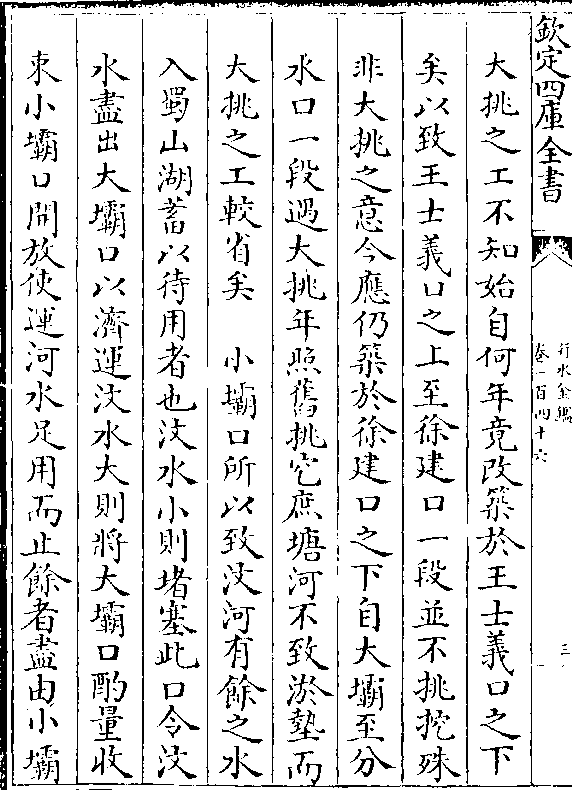 欽定四庫全書
行水金鑑
卷一百四十六
三
大挑之工不知始自何年竟改築於王士義口之下
矣以致王士義口之上至徐建口一段並不挑挖殊
非大挑之意今應仍築於徐建口之下自大壩至分
水口一段遇大挑年照舊挑乞庶塘河不致淤墊而
大挑之工較省矣　小壩口所以致汶河有餘之水
入蜀山湖蓄以待用者也汶水小則堵塞此口令汶
水盡出大壩口以濟運汶水大則將大壩口酌量收
束小壩口開放使運河水足用而止餘者盡由小壩